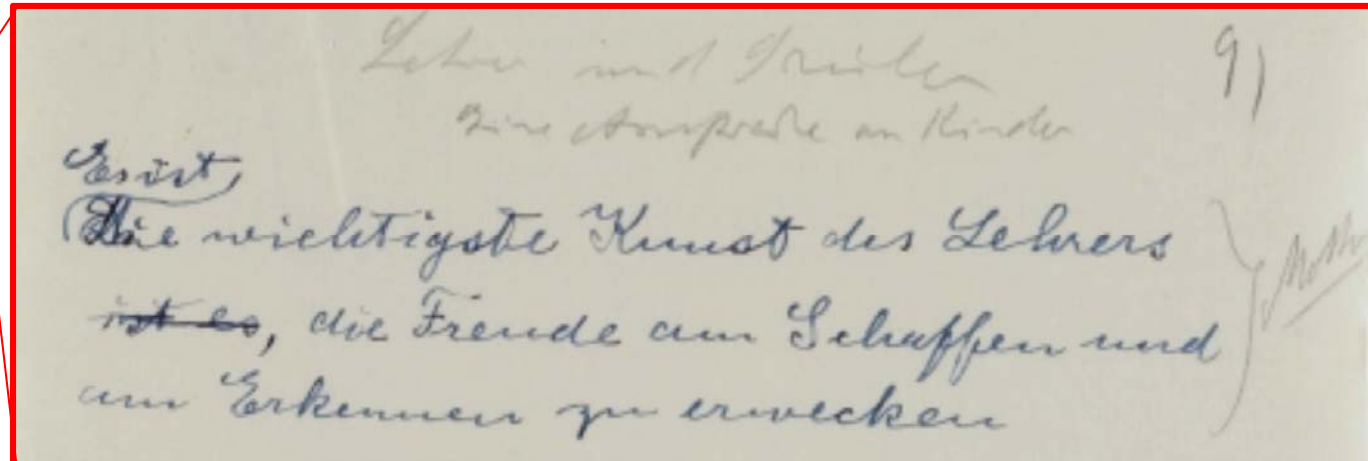 Lehrer und Schüler 91
Eine Ansprache an Kinder
Es ist
Die wichtigste Kunst des Lehrers
ist es, die Freude am Schaffen und Motto
am Erkennen zu erwecken